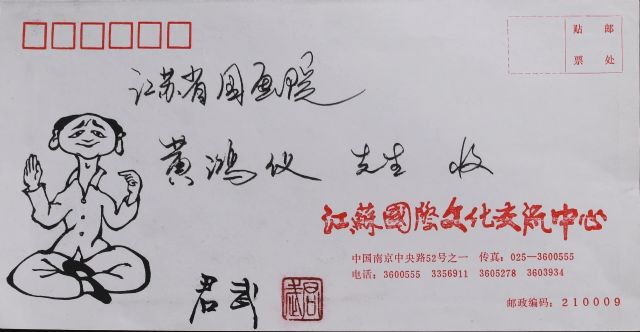 贴 邮
票 处
江苏省国画院
黄鸿仪 先生 收
江蘇國際文化交流中心
中国南京中央路52号之一 传真：025—3600555
电话：3600555 3356911 3605278 3603934
君武
君武
邮政编码：210009